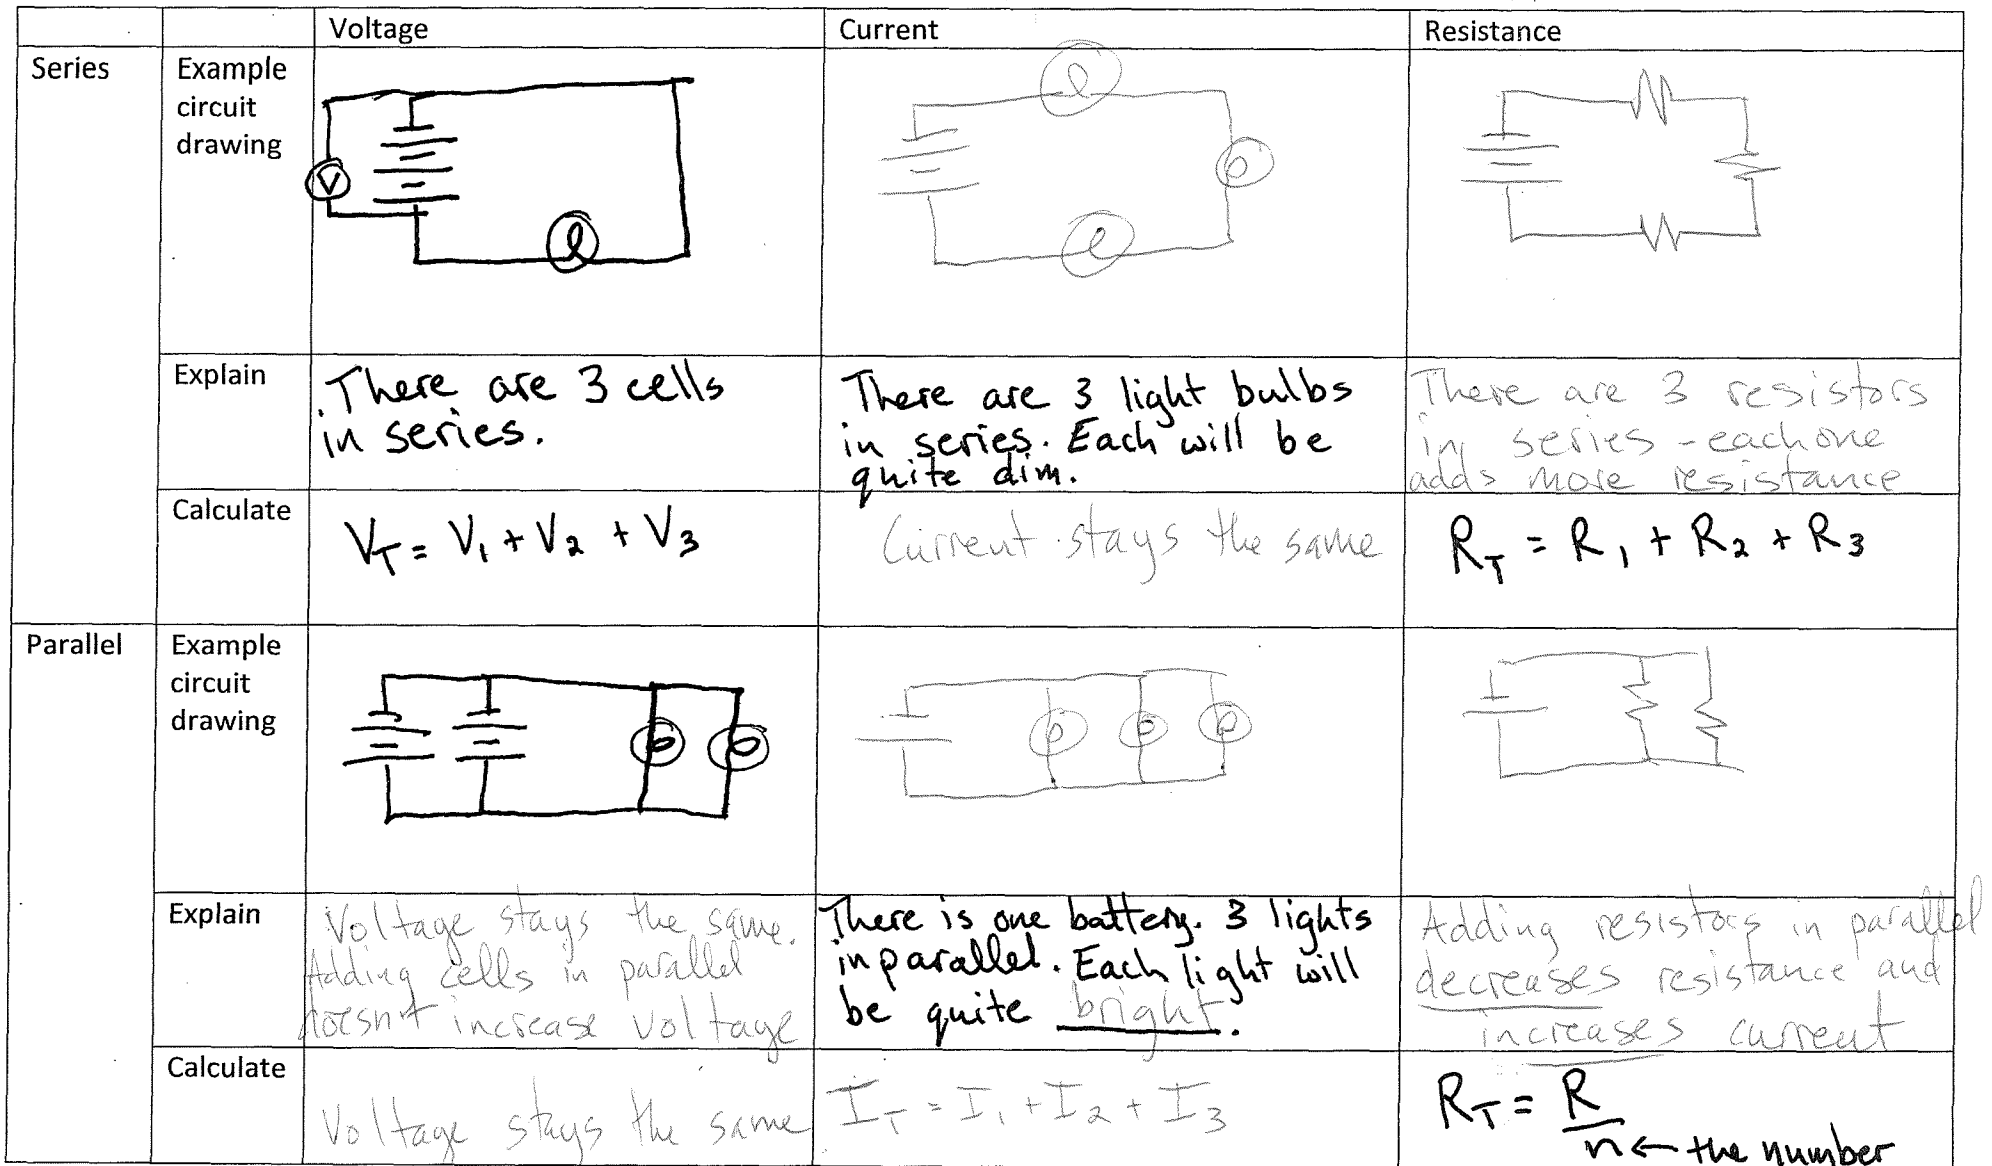 Voltage
Current
Resistance
Series
Example
circuit
drawing
V
Explain
There are 3 cells
in series.
There are 3 light bulbs
in series. Each will be
quite dim.
There are 3 resistors
in series - each one
adds more resistance
Calculate
VT = V1 + V2 + V3
Current stays the same
RT = R1 + R2 + R3
Parallel
Example
circuit
drawing
Explain
Voltage stays the same.
Adding cells in parallel
doesn't increase voltage
There is one battery. 3 lights
in parallel. Each light will
be quite bright.
Adding resistors in parallel
decreases resistance and
increases current
Calculate
Voltage stays the same
IT = I1 + I2 + I3
RT = R
n ← the number